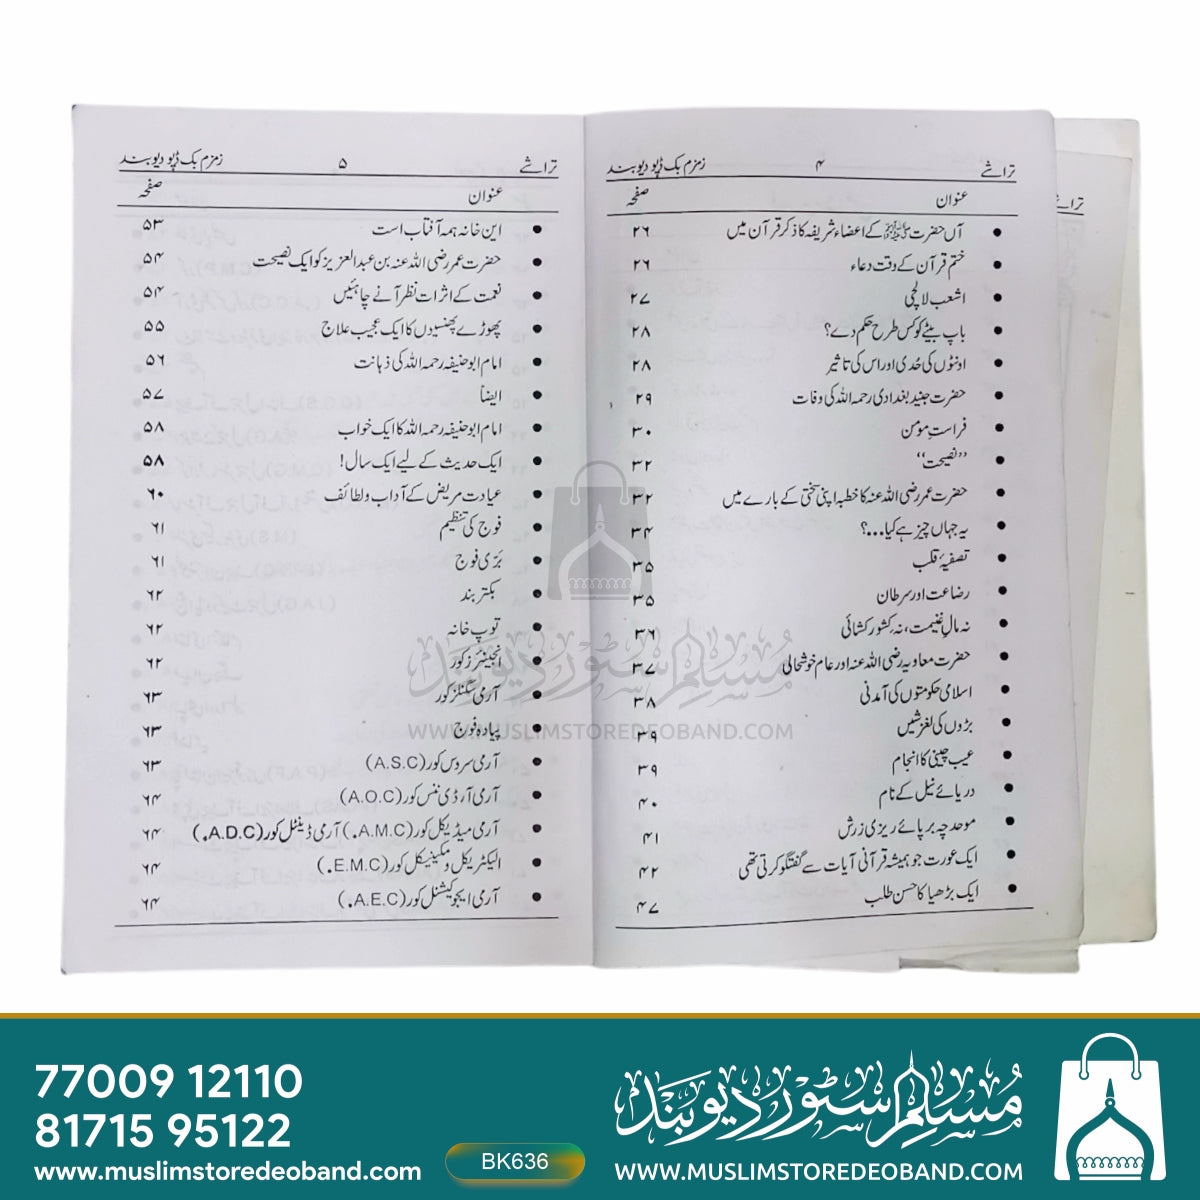 تراشے ۴ زمزم بک ڈپو دیوبند
عنوان صفحہ
• آں حضرت ﷺ کے اعضاء شریفہ کا ذکر قرآن میں ۲۶
• ختم قرآن کے وقت دعاء ۲۶
• اشعب لالچی ۲۷
• باپ بیٹے کو کس طرح حکم دے؟ ۲۸
• اونٹوں کی حُدی اور اس کی تاثیر ۲۸
• حضرت جنید بغدادی رحمہ اللہ کی وفات ۲۹
• فراستِ مومن ۳۰
• ’’نصیحت‘‘ ۳۲
• حضرت عمر رضی اللہ عنہ کا خطبہ اپنی سختی کے بارے میں ۳۲
• یہ جہاں چیز ہے کیا...؟ ۳۴
• تصفیۂ قلب ۳۵
• رضاعت اور سرطان ۳۵
• نہ مالِ غنیمت، نہ کشور کشائی ۳۶
• حضرت معاویہ رضی اللہ عنہ اور عام خوشحالی ۳۷
• اسلامی حکومتوں کی آمدنی ۳۸
• بڑوں کی لغزشیں ۳۹
• عیب چینی کا انجام ۳۹
• دریائے نیل کے نام ۴۰
• موحد چہ بر پائے ریزی زرش ۴۱
• ایک عورت جو ہمیشہ قرآنی آیات سے گفتگو کرتی تھی ۴۲
• ایک بڑھیا کا حسن طلب ۴۷
تراشے ۵ زمزم بک ڈپو دیوبند
عنوان صفحہ
• این خانہ ہمہ آفتاب است ۵۳
• حضرت عمر رضی اللہ عنہ بن عبدالعزیز کو ایک نصیحت ۵۴
• نعمت کے اثرات نظر آنے چاہئیں ۵۴
• پھوڑے پھنسیوں کا ایک عجیب علاج ۵۵
• امام ابو حنیفہ رحمہ اللہ کی ذہانت ۵۶
• ایضاً ۵۷
• امام ابو حنیفہ رحمہ اللہ کا ایک خواب ۵۸
• ایک حدیث کے لیے ایک سال! ۵۸
• عیادت مریض کے آداب و لطائف ۶۰
• فوج کی تنظیم ۶۱
• بَرّی فوج ۶۱
• بکتر بند ۶۲
• توپ خانہ ۶۲
• انجینئرز کور ۶۲
• آرمی سگنلز کور ۶۳
• پیادہ فوج ۶۳
• آرمی سروس کور (A.S.C) ۶۳
• آرمی آرڈی ننس کور (A.O.C) ۶۴
• آرمی میڈیکل کور (A.M.C.) آرمی ڈینٹل کور (A.D.C.) ۶۴
• الیکٹریکل و مکینیکل کور (E.M.C.) ۶۴
• آرمی ایجوکیشنل کور (A.E.C.) ۶۴
تراشے
مسلم سٹور دیوبند
WWW.MUSLIMSTOREDEOBAND.COM
77009 12110
81715 95122
www.muslimstoredeoband.com
BK636
مسلم سٹور دیوبند
WWW.MUSLIMSTOREDEOBAND.COM